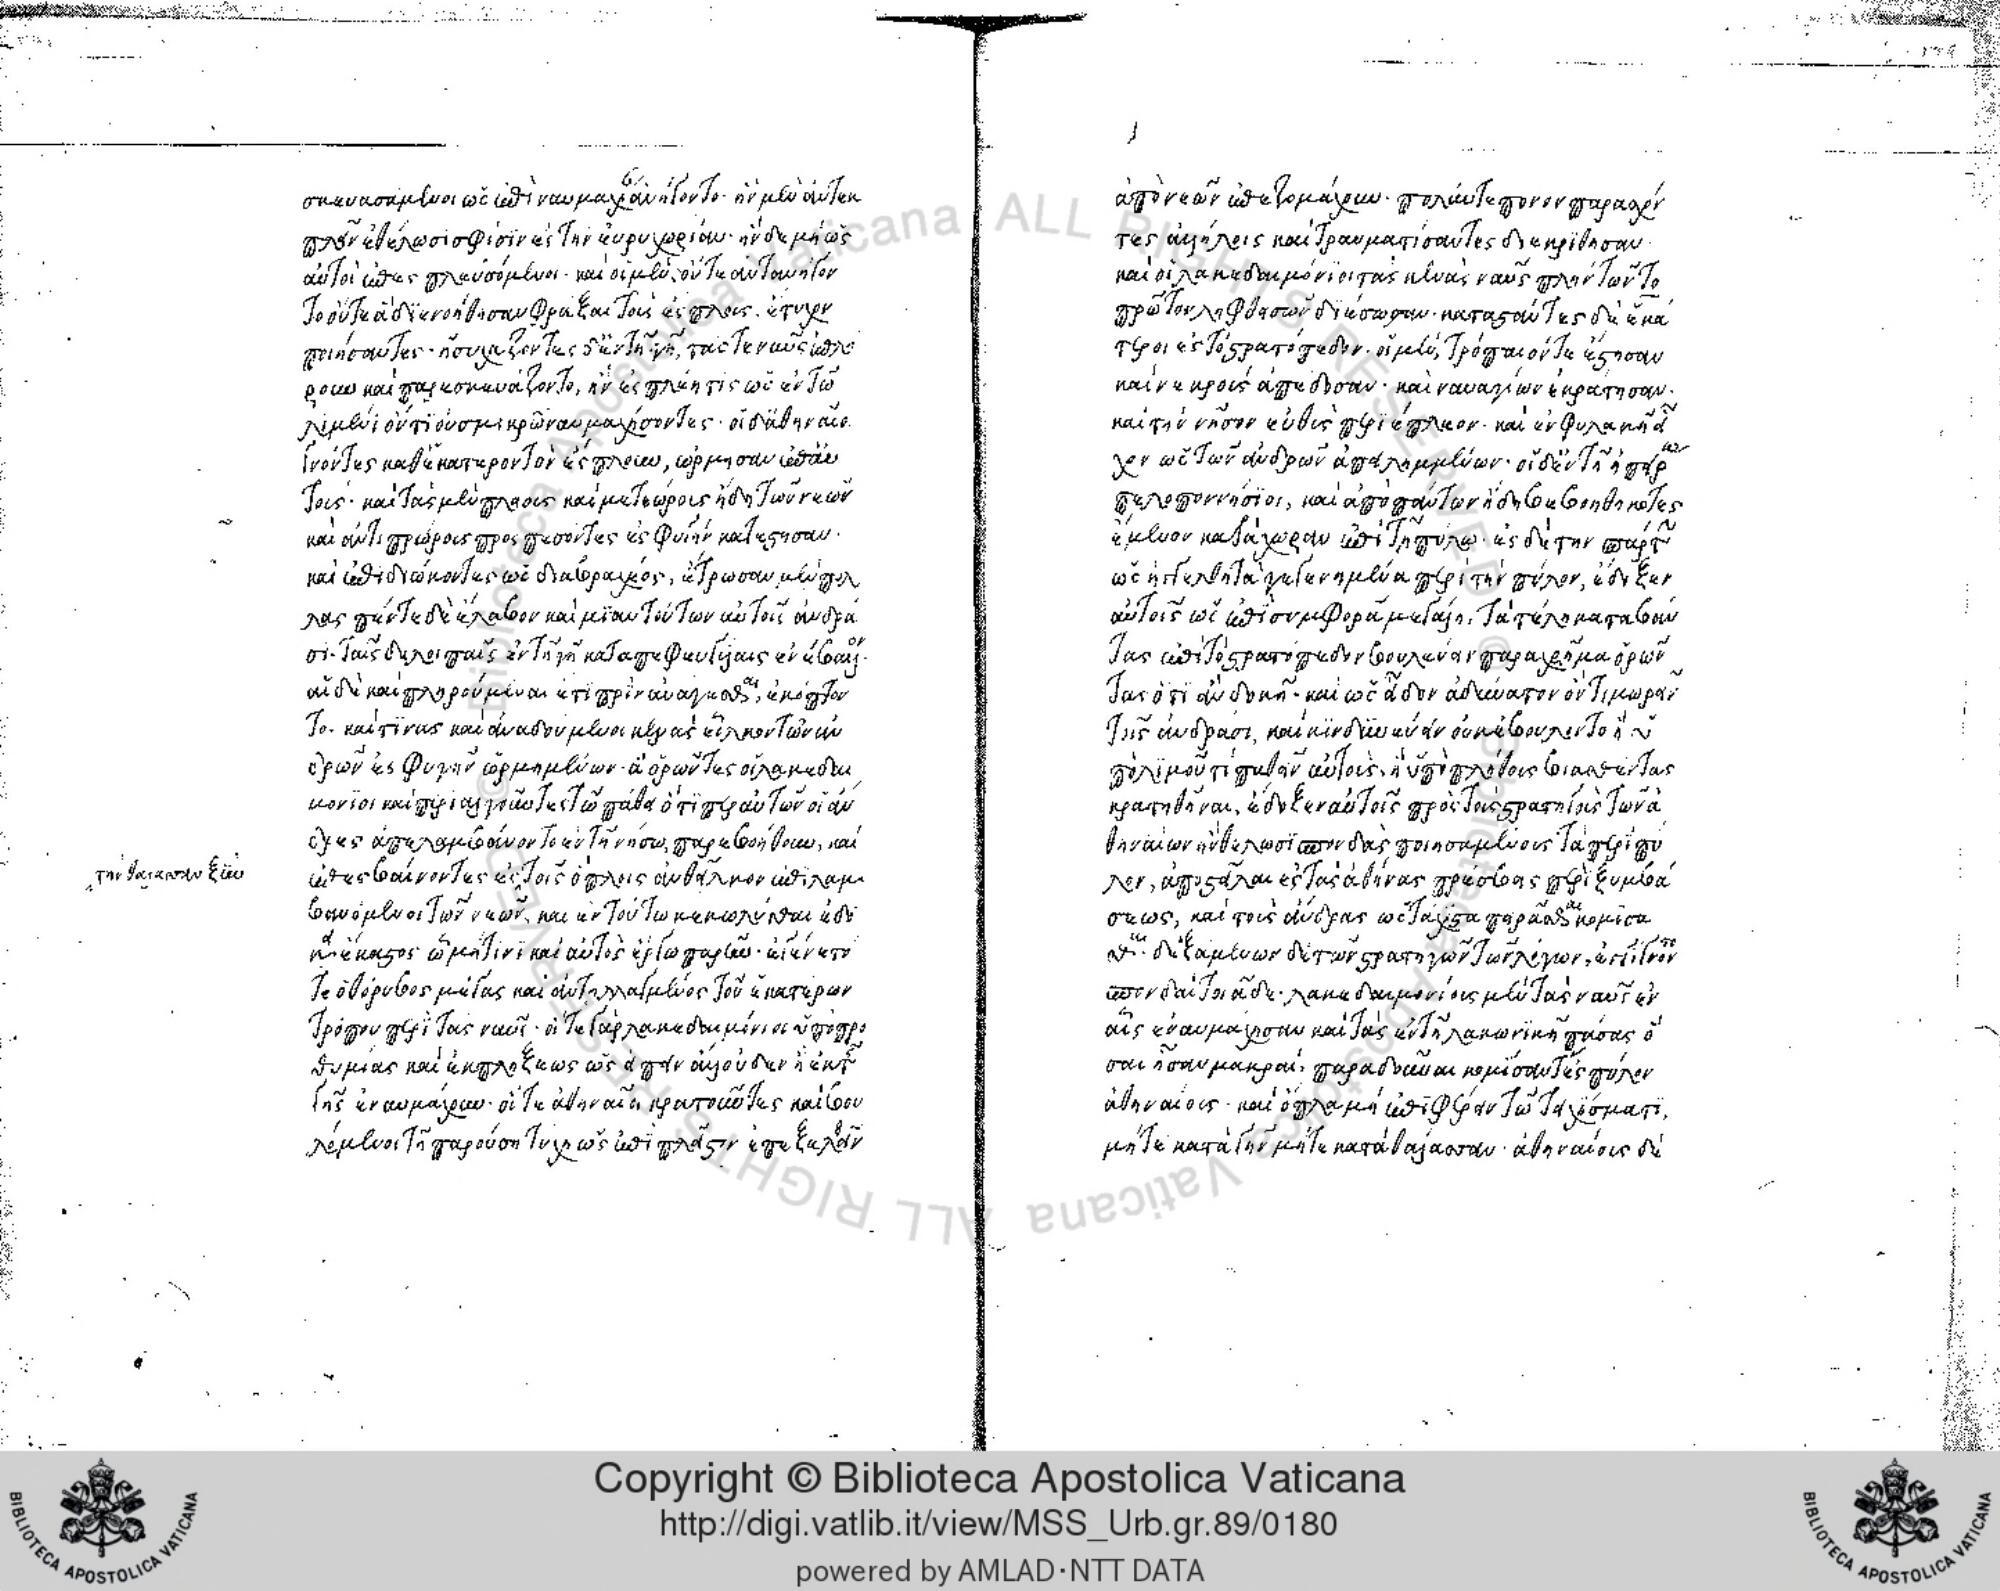 σκευασάμενοι ὡς ἐπὶ ναυμαχίαν ἀνήγοντο· ἢν μὲν ἀντεκ
πλεῖν ἐθέλωσι σφίσιν ἐς τὴν εὐρυχωρίαν· ἢν δὲ μὴ ὡς
αὐτοὶ ἐπεσπλευσόμενοι· καὶ οἱ μὲν, οὔτε ἀντανήγον
το οὔτε ἃ διενοήθησαν φράξαι τοὺς ἔσπλους, ἔτυχον
ποιήσαντες· ἡσυχάζοντες δ' ἐν τῇ γῇ, τάς τε ναῦς ἐπλή
ρουν καὶ παρεσκευάζοντο, ἢν ἐσπλέῃ τις ὡς ἐν τῷ
λιμένι ὄντι οὐ σμικρῷ ναυμαχήσοντες· οἱ δ' ἀθηναῖοι
γνόντες καθ' ἑκάτερον τὸν ἔσπλουν, ὥρμησαν ἐπ' αὐ
τούς· καὶ τὰς μὲν πλείους καὶ μετεώρους ἤδη τῶν νεῶν
καὶ ἀντιπρώρους προσπεσόντες ἐς φυγὴν κατέστησαν·
καὶ ἐπιδιώκοντες ὡς διὰ βραχέος, ἔτρωσαν μὲν πολ
λὰς πέντε δὲ ἔλαβον καὶ μίαν τούτων αὐτοῖς ἀνδρά
σι· ταῖς δὲ λοιπαῖς ἐν τῇ γῇ καταπεφευγυίαις ἐνέβαλλον·
αἱ δὲ καὶ πληρούμεναι ἔτι πρὶν ἀνάγεσθαι, ἐκόπτον
το· καί τινας καὶ ἀναδούμενοι κενὰς εἷλκον τῶν ἀν
δρῶν ἐς φυγὴν ὡρμημένων· ἃ ὁρῶντες οἱ λακεδαι
μόνιοι καὶ περιαλγοῦντες τῷ πάθει ὅτι περ αὐτῶν οἱ ἄν
δρες ἀπελαμβάνοντο ἐν τῇ νήσῳ, παρεβοήθουν, καὶ
τὴν θάλασσαν ξὺν
ἐπεσβαίνοντες ἐς τοῖς ὅπλοις ἀνθεῖλκον ἐπιλαμ
βανόμενοι τῶν νεῶν, καὶ ἐν τούτῳ κεκωλῦσθαι ἐδό
κει ἕκαστος ᾧ μή τινι καὶ αὐτὸς ἔργῳ παρῆν· ἐγένετό
τε ὁ θόρυβος μέγας καὶ ἀντηλλαγμένος τοῦ ἑκατέρων
τρόπου περὶ τὰς ναῦς· οἵ τε γὰρ λακεδαιμόνιοι ὑπὸ προ
θυμίας καὶ ἐκπλήξεως ὡς εἰπεῖν ἄλλο οὐδὲν ἢ ἐκ
γῆς ἐναυμάχουν· οἵ τε ἀθηναῖοι κρατοῦντες καὶ βου
λόμενοι τῇ παρούσῃ τύχῃ ὡς ἐπὶ πλεῖστον ἐπεξελθεῖν
ἀπὸ νεῶν ἐπεζομάχουν· πολύν τε πόνον παρασχόν
τες ἀλλήλοις καὶ τραυματίσαντες διεκρίθησαν·
καὶ οἱ λακεδαιμόνιοι τὰς κενὰς ναῦς πλὴν τῶν τὸ
πρῶτον ληφθεισῶν διέσωσαν· καταστάντες δὲ ἑκά
τεροι ἐς τὸ στρατόπεδον· οἱ μὲν, τροπαῖόν τε ἔστησαν
καὶ νεκροὺς ἀπέδοσαν· καὶ ναυαγίων ἐκράτησαν·
καὶ τὴν νῆσον εὐθὺς περιέπλεον· καὶ ἐν φυλακῇ εἶ
χον ὡς τῶν ἀνδρῶν ἀπειλημμένων· οἱ δ' ἐν τῇ ἠπείρῳ
πελοποννήσιοι, καὶ ἀπὸ πάντων ἤδη βεβοηθηκότες
ἔμενον κατὰ χώραν ἐπὶ τῇ πύλῳ· ἐς δὲ τὴν σπάρτην
ὡς ἠγγέλθη τὰ γεγενημένα περὶ τὴν πύλον, ἔδοξεν
αὐτοῖς ὡς ἐπὶ συμφορᾷ μεγάλῃ, τὰ τέλη καταβάν
τας ἐπὶ τὸ στρατόπεδον βουλεύειν παραχρῆμα ὁρῶν
τας ὅτι ἂν δοκῇ· καὶ ὡς εἶδον ἀδύνατον ὂν τιμωρεῖν
τοῖς ἀνδράσι, καὶ κινδυνεύειν οὐκ ἐβούλοντο ἢ ὑ
πὸ λιμοῦ τι παθεῖν αὐτοὺς, ἢ ὑπὸ πλήθους βιασθέντας
κρατηθῆναι, ἔδοξεν αὐτοῖς πρὸς τοὺς στρατηγοὺς τῶν ἀ
θηναίων ἢν θέλωσι σπονδὰς ποιησαμένους τὰ περὶ πύ
λον, ἀποστεῖλαι ἐς τὰς ἀθήνας πρέσβεις περὶ ξυμβά
σεως, καὶ τοὺς ἄνδρας ὡς τάχιστα πειρᾶσθαι κομίσα
σθαι· δεξαμένων δὲ τῶν στρατηγῶν τῶν λόγων, ἐγίγνοντο
σπονδαὶ τοιαίδε· λακεδαιμονίους μὲν τὰς ναῦς ἐν
αἷς ἐναυμάχησαν καὶ τὰς ἐν τῇ λακωνικῇ πάσας ὅ
σαι ἦσαν μακραί, παραδοῦναι κομίσαντες πύλον
ἀθηναίοις· καὶ ὅπλα μὴ ἐπιφέρειν τῷ τειχίσματι,
μήτε κατὰ γῆν μήτε κατὰ θάλασσαν· ἀθηναίους δὲ
Copyright © Biblioteca Apostolica Vaticana
http://digi.vatlib.it/view/MSS_Urb.gr.89/0180
powered by AMLAD·NTT DATA
BIBLIOTECA APOSTOLICA VATICANA
BIBLIOTECA APOSTOLICA VATICANA